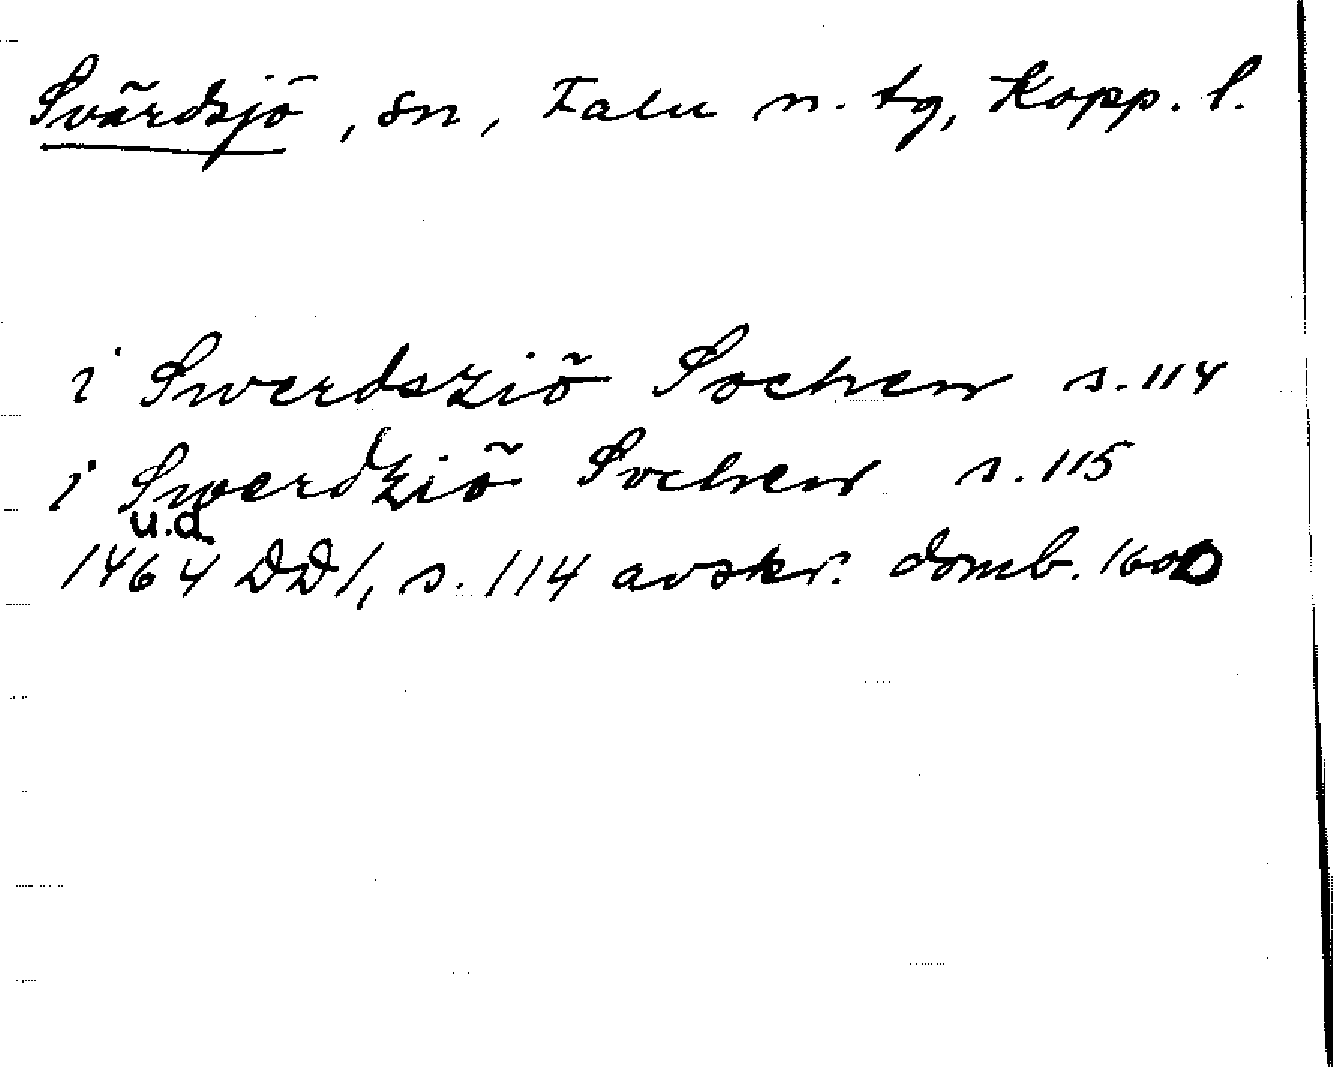 Svärdsjö, sn, Falu n. tg, Kopp. l.
i Swerdsziö Sochen s. 114
i Swerdziö Sochen s. 115
u.d.
1464 DD1, s. 114 avskr. domb. 1600